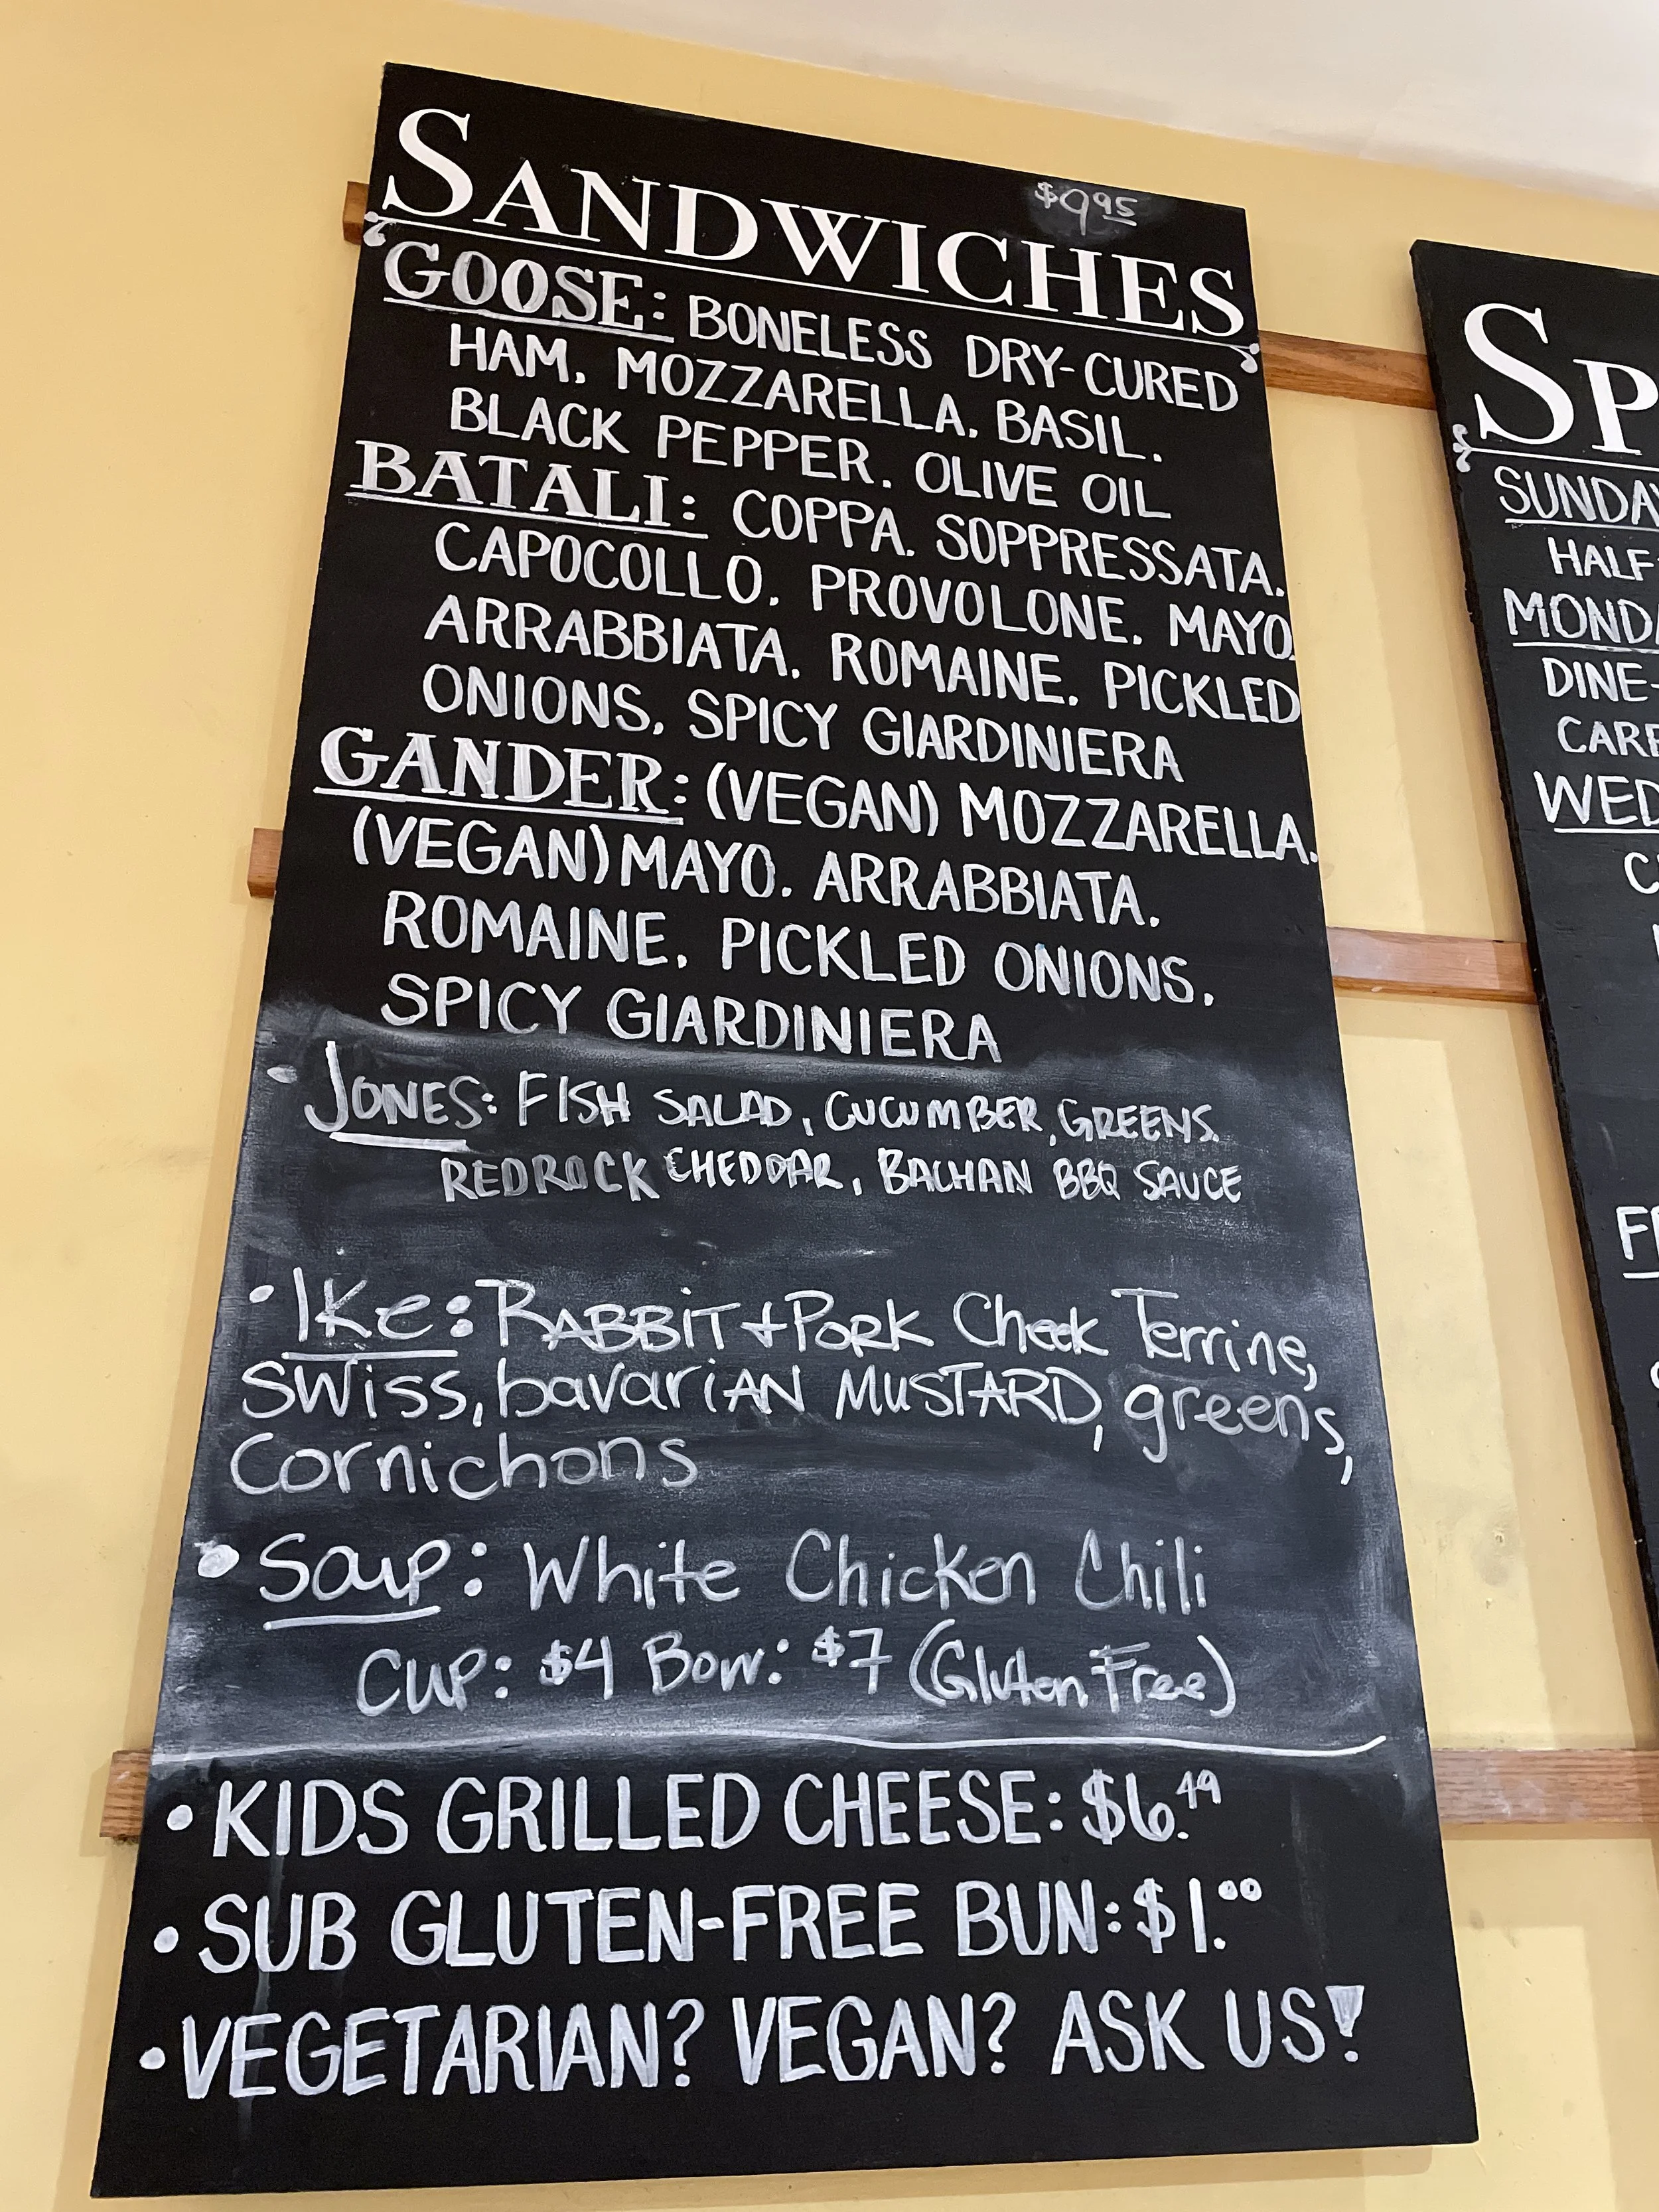 SANDWICHES $9.95
GOOSE: BONELESS DRY-CURED
HAM, MOZZARELLA, BASIL,
BLACK PEPPER, OLIVE OIL
BATALI: COPPA, SOPPRESSATA,
CAPOCOLLO, PROVOLONE, MAYO,
ARRABBIATA, ROMAINE, PICKLED
ONIONS, SPICY GIARDINIERA
GANDER: (VEGAN) MOZZARELLA,
(VEGAN) MAYO, ARRABBIATA,
ROMAINE, PICKLED ONIONS,
SPICY GIARDINIERA
• JONES: FISH SALAD, CUCUMBER, GREENS,
REDROCK CHEDDAR, BACHAN BBQ SAUCE
• Ike: RABBIT + PORK Cheek Terrine,
SWISS, bavariAN MUSTARD, greens,
Cornichons
• Soup: White Chicken Chili
CUP: $4 Bow: $7 (Gluten Free)
• KIDS GRILLED CHEESE: $6.49
• SUB GLUTEN-FREE BUN: $1.00
• VEGETARIAN? VEGAN? ASK US!
SP
SUNDAY
HALF
MONDA
DINE-
CARE
WED